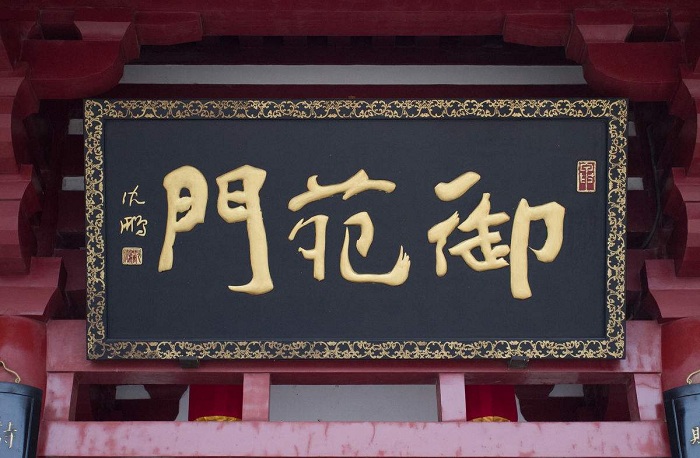 御苑門
沈鵬